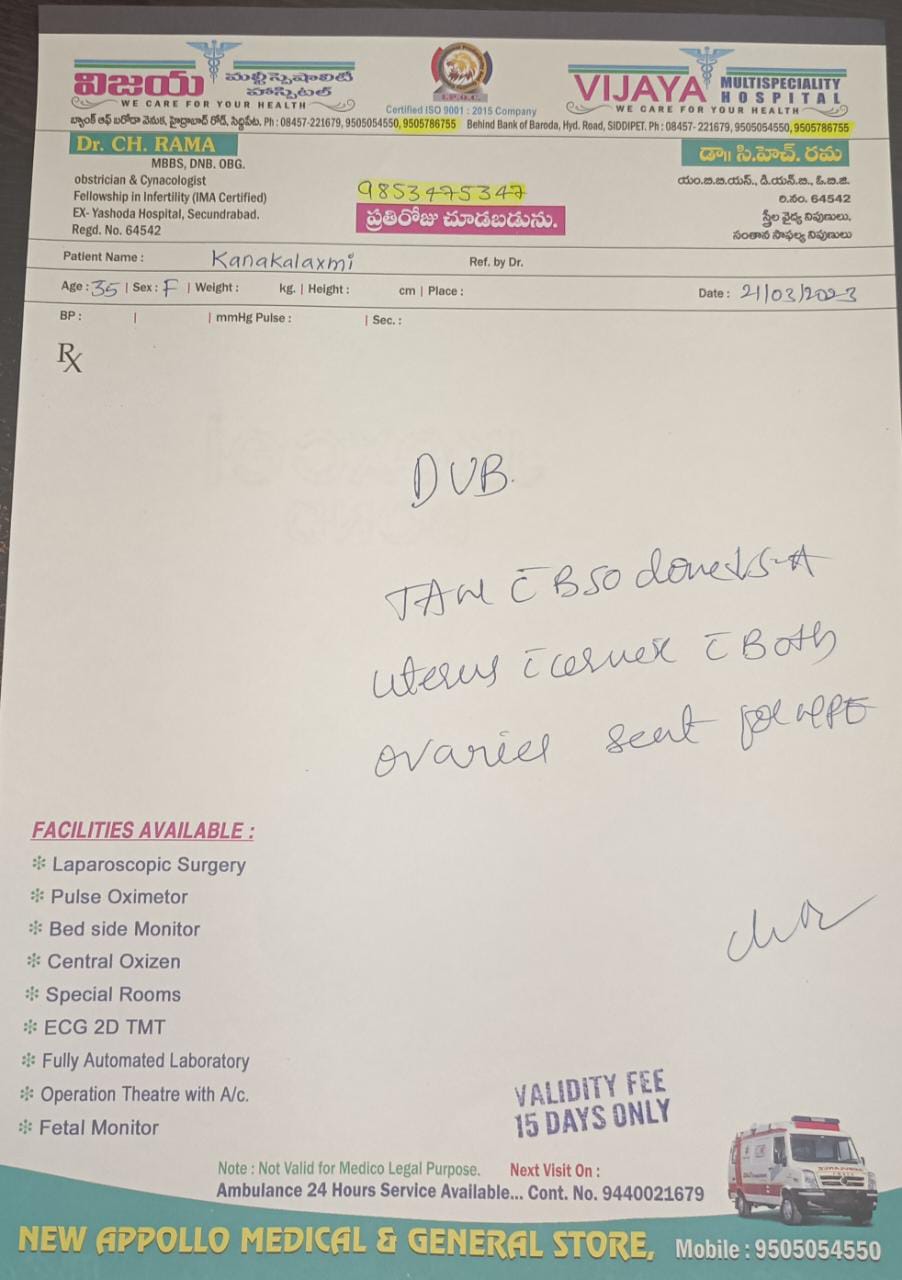 విజయ మల్టీస్పెషాలిటీ హాస్పిటల్
WE CARE FOR YOUR HEALTH
VIJAYA MULTISPECIALITY HOSPITAL
WE CARE FOR YOUR HEALTH
Certified ISO 9001 : 2015 Company
బ్యాంక్ ఆఫ్ బరోడా వెనుక, హైద్రాబాద్ రోడ్, సిద్దిపేట. Ph : 08457-221679, 9505054550, 9505786755 Behind Bank of Baroda, Hyd. Road, SIDDIPET. Ph : 08457- 221679, 9505054550, 9505786755
Dr. CH. RAMA
MBBS, DNB. OBG.
obstrician & Cynacologist
Fellowship in Infertility (IMA Certified)
EX- Yashoda Hospital, Secundrabad.
Regd. No. 64542
9853475347
ప్రతిరోజు చూడబడును.
డా॥ సి.హెచ్. రమ
యం.బి.బి.యస్., డి.యన్.బి., ఓ.బి.జి.
రి.నం. 64542
స్త్రీల వైద్య నిపుణులు,
సంతాన సాఫల్య నిపుణులు
Patient Name : Kanakalaxmi Ref. by Dr.
Age : 35 | Sex : F | Weight : kg. | Height : cm | Place : Date : 21/03/2023
BP : | | mmHg Pulse : | Sec. :
Rx
DUB.
TAH c̄ BSO done
uterus c̄ cervix c̄ Both
ovaries sent for HPE
FACILITIES AVAILABLE :
Laparoscopic Surgery
Pulse Oximetor
Bed side Monitor
Central Oxizen
Special Rooms
ECG 2D TMT
Fully Automated Laboratory
Operation Theatre with A/c.
Fetal Monitor
VALIDITY FEE
15 DAYS ONLY
Note : Not Valid for Medico Legal Purpose. Next Visit On :
Ambulance 24 Hours Service Available... Cont. No. 9440021679
NEW APPOLLO MEDICAL & GENERAL STORE, Mobile : 9505054550